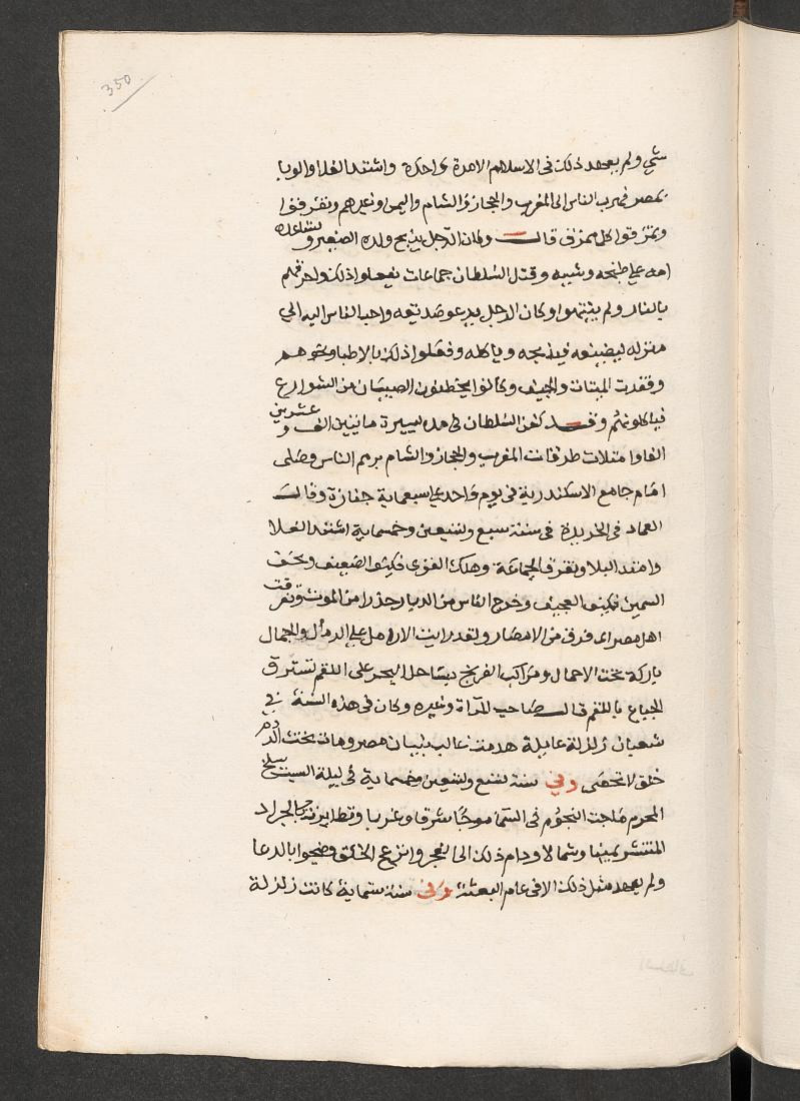 350
شي ولم يعهد ذلك في الاسلام الا مرة واحدة واشتد الغلا والوبا
بمصر فهرب الناس الى المغرب والحجاز والشام واليمن وغيرهم وتفرقوا
وتمزقوا كل ممزق قال وكان الرجل يذبح ولده الصغير وتساعده
امه على طبخه وشيه وقتل السلطان جماعات فعلوا ذلك واحرقهم
بالنار ولم ينتهوا وكان الرجل يدعو صديقه واحب الناس اليه الي
منزله ليضيفه فيذبحه وياكله وفعلوا ذلك بالاطبا ونحوهم
وفقدت الميتات والجيف وكانوا يخطفون الصبيان من الشوارع
فياكلونهم وقد كفن السلطان في مدة يسيرة مايتين الف وعشرين
الفا وامتلات طرقات المغرب والحجاز والشام برمم الناس وصلى
امام جامع الاسكندرية في يوم واحد على سبعماية جنازة وقال
العماد في الخريدة في سنة سبع وتسعين وخمسماية اشتد الغلا
وامتد البلا وتفرق الجماعة وهلك القوى فكيف الضعيف ونحف
السمين فكيف العجيف وخرج الناس من الديار حذرا من الموت وتفرقت
اهل مصر اى فرق من الامصار ولقد رايت الارامل على الرمال والجمال
باركة تحت الاحمال ومراكب الفرنج بساحل البحر على اللقم تسترق
الجياع باللقم قال صاحب المرآة وغيره وكان في هذه السنة في
شعبان زلزلة هايلة هدمت غالب بنيان مصر ومات تحت الردم
خلق لا تحصى وفي سنة تسع وتسعين وخمسماية في ليلة السبت سلخ
المحرم هاجت النجوم في السما موجا شرقا وغربا وتطايرت كالجراد
المنتشر يمينا وشمالا ودام ذلك الى الفجر وانزعج الخلق وضجوا بالدعا
ولم يعهد مثل ذلك الا في عام البعثة وفي سنة ستماية كانت زلزلة